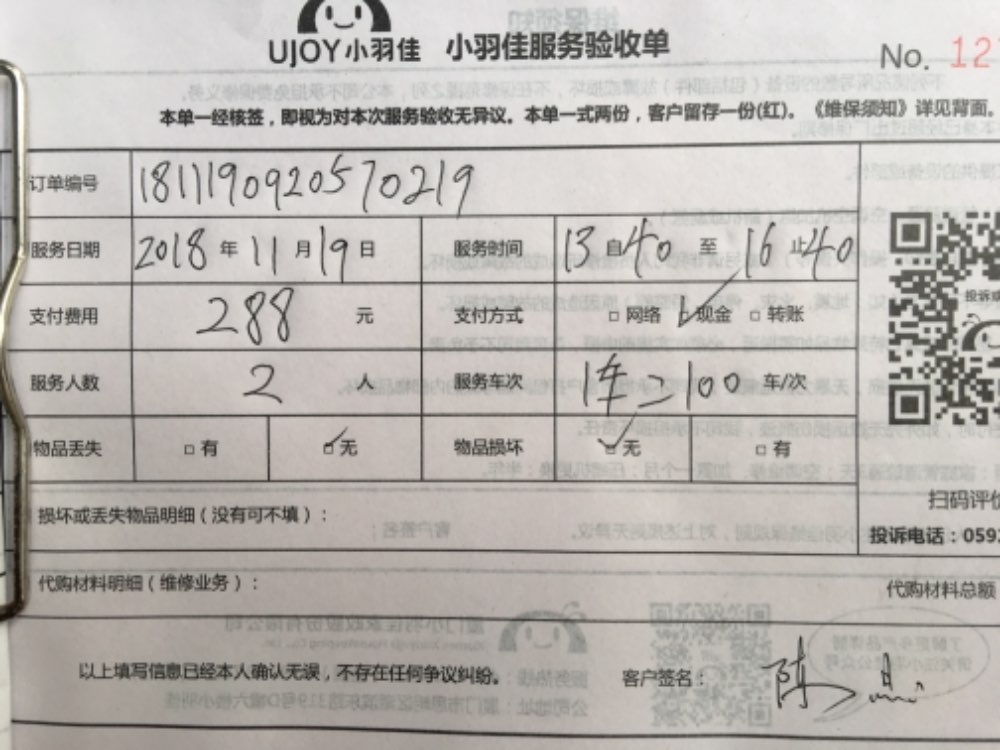 UJOY小羽佳 小羽佳服务验收单
No. 12
本单一经核签，即视为对本次服务验收无异议。本单一式两份，客户留存一份(红)。《维保须知》详见背面。
订单编号 1811190920570219
服务日期 2018 年 11 月 19 日 服务时间 13 自 40 至 16 止 40
支付费用 288 元 支付方式 □网络 ☑现金 □转账
服务人数 2 人 服务车次 车/次
物品丢失 □有 ☑无 物品损坏 ☑无 □有
损坏或丢失物品明细（没有可不填）：
扫码评价
投诉电话：0592
代购材料明细（维修业务）：
代购材料总额
以上填写信息已经本人确认无误，不存在任何争议纠纷。 客户签名：